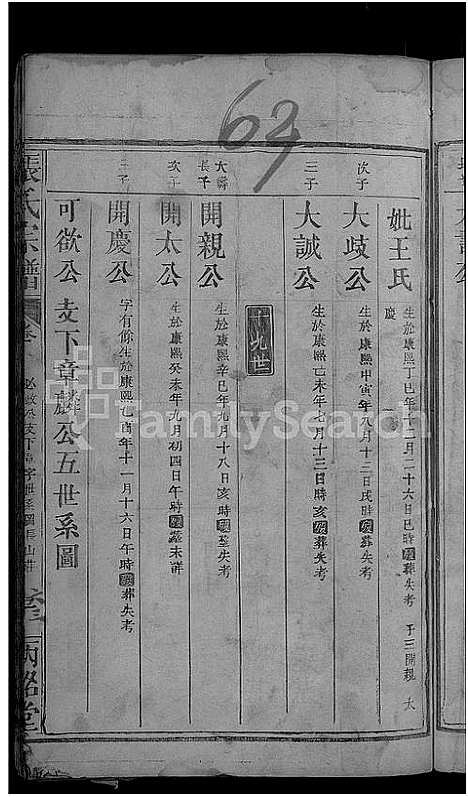 63
妣王氏 生於康熙丁巳年十二月二十六日巳時殁葬失考 子三開親 太
慶
次子 大歧公 生於康熙甲寅年八月十三日戌時殁葬失考
三子 大誠公 生於康熙己未年七月十三日時亥殁葬失考
十九世
大歧長子 開親公 生於康熙辛巳年九月十八日亥時殁塟失考
次子 開太公 生於康熙癸未年九月初四日午時殁塟未詳
三子 開慶公 字有餘生於康熙乙酉年十一月十六日午時殁葬失考
可欲公支下章公五世系圖
張氏宗譜
卷
堂
FamilySearch